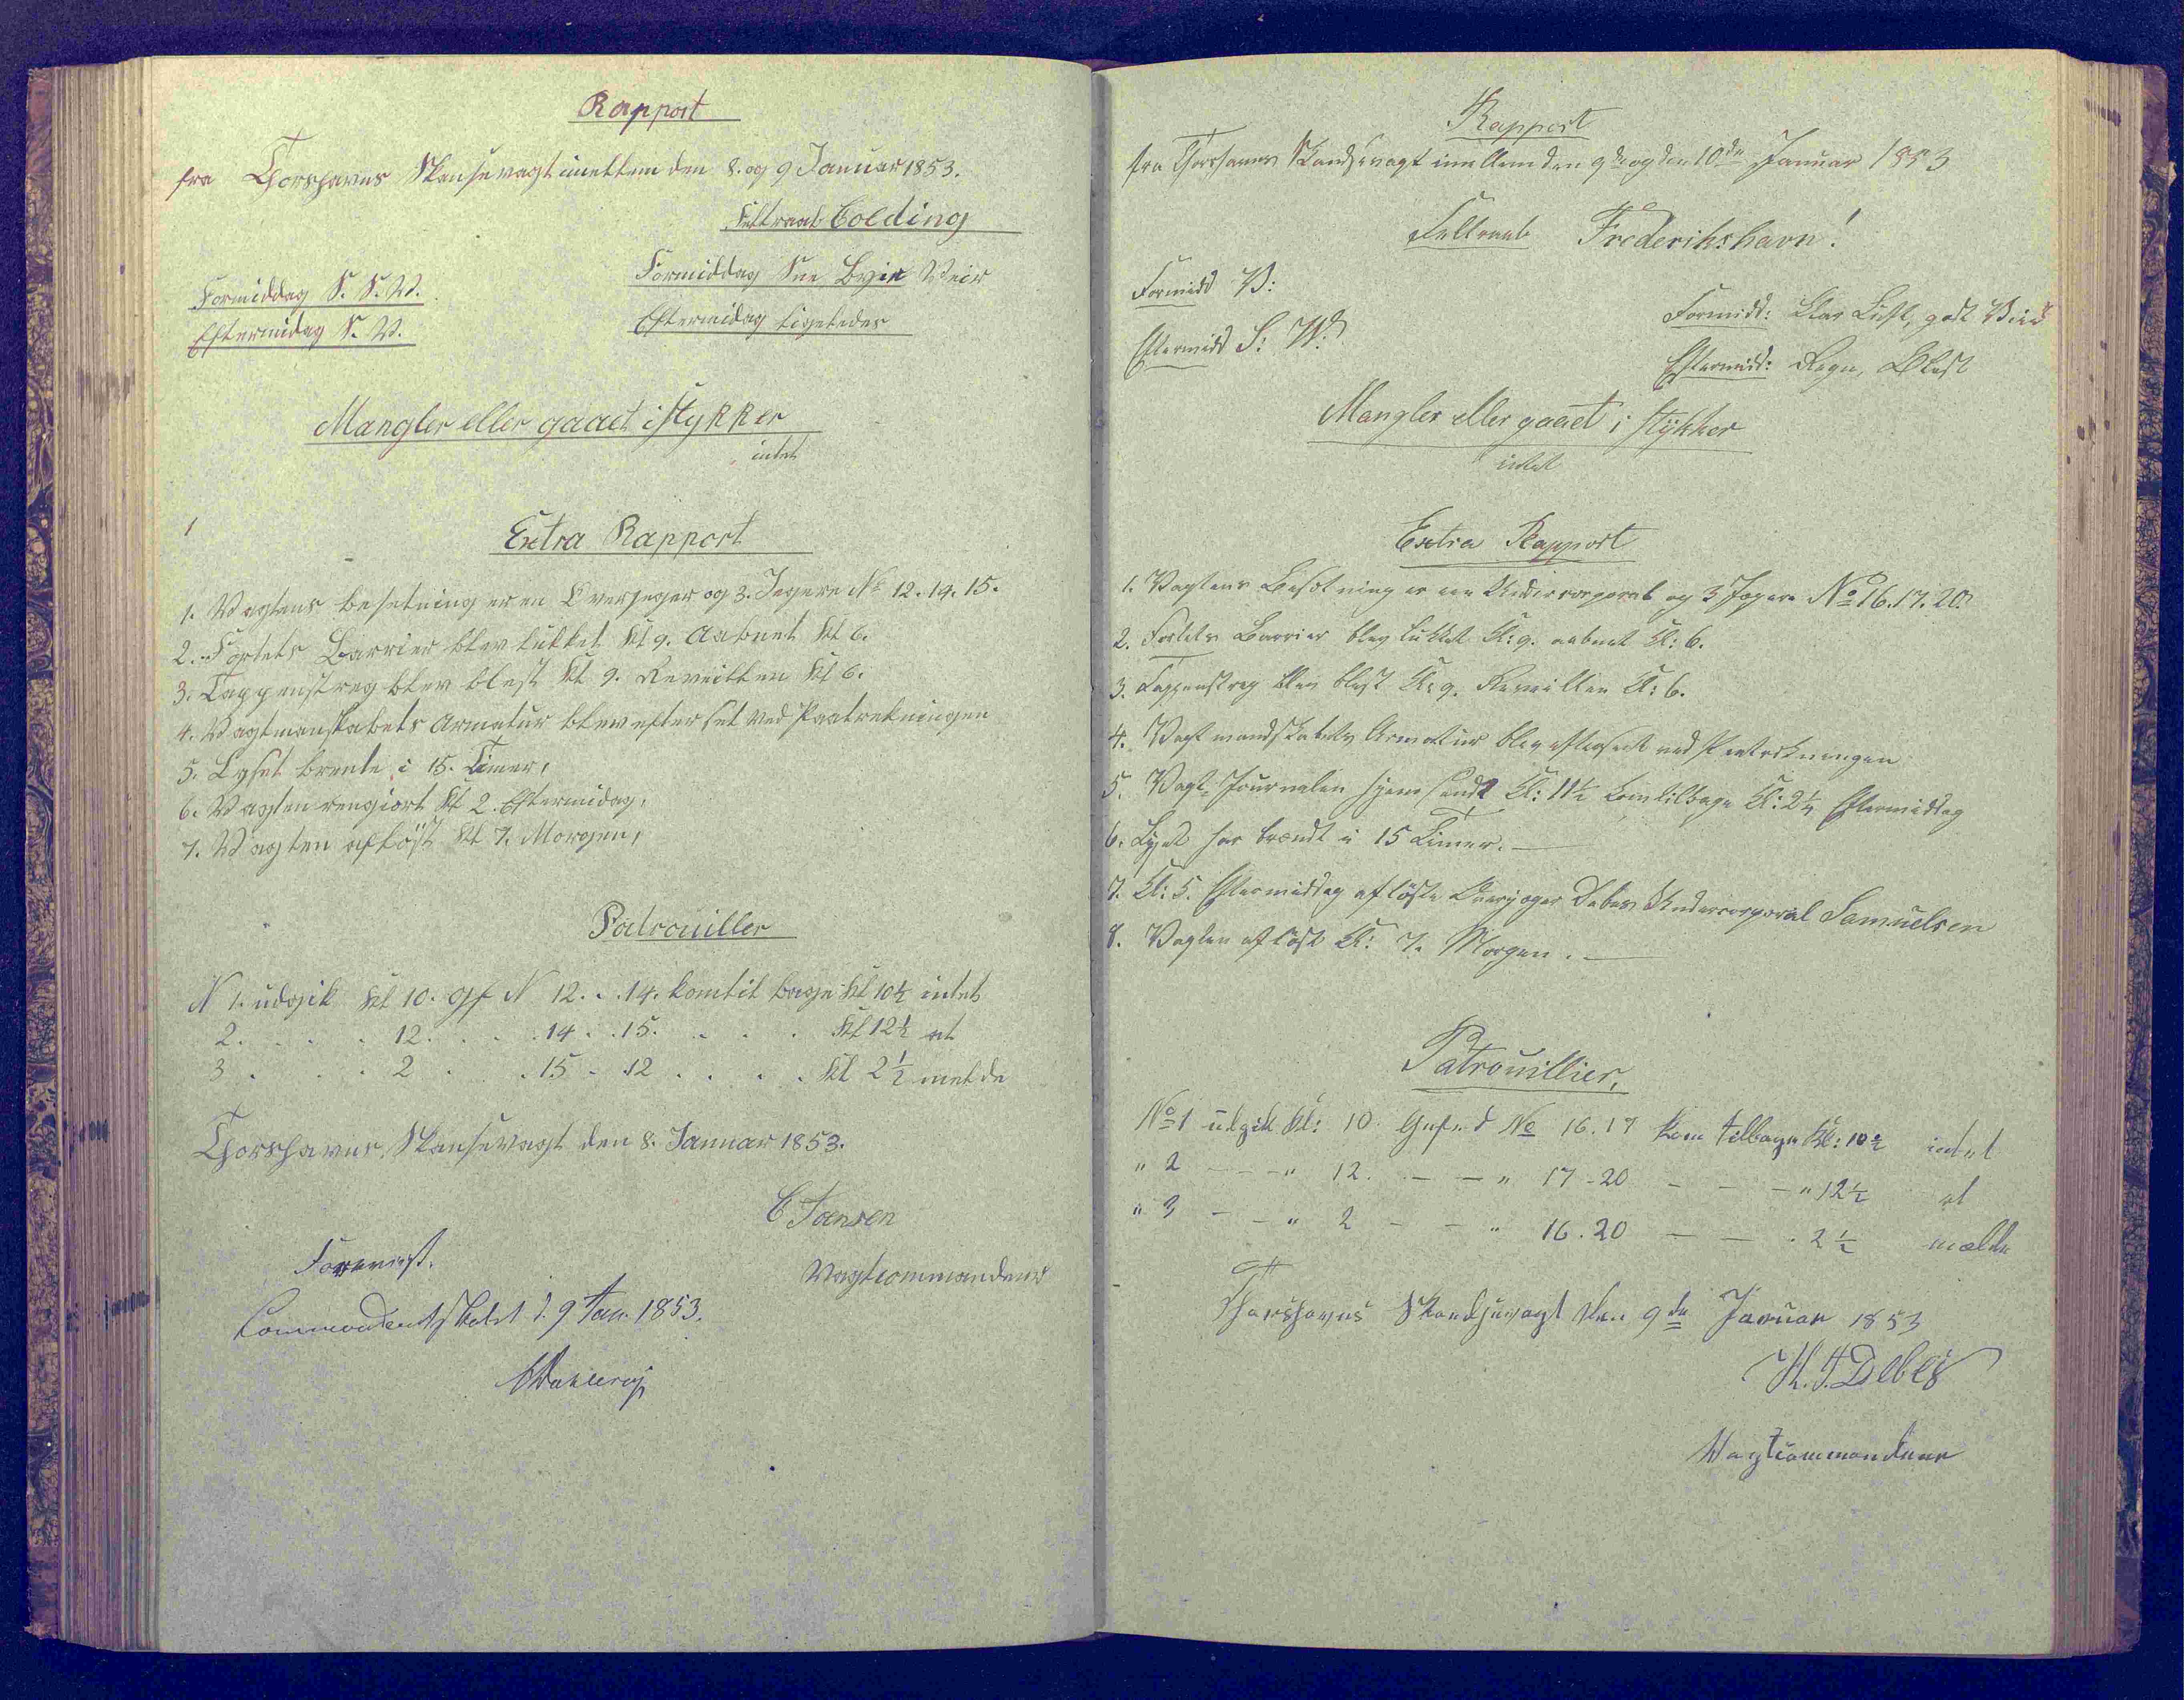 Rapport
fra Thorshavns Skansevagt imellem den 8. og 9 Januar 1853.
Feltraab Colding
Formiddag S. S. W.
Formiddag Sne Byir Veir
Eftermidag S. W.
Eftermidag ligeledes
Mangler eller gaaet istykker
intet
Extra Rapport
1. Vagtens besetning er en Overjeger og 3. Jegere No 12. 14. 15.
2. Fortets Barrier blev lukket kl 9. Aabnet kl 6.
3. Tappenstreg blev blest kl 9. Reveillen kl 6.
4. Vagtmanskabets Armatur blev efterset ved Paatrekningen
5. Lyset brente i 15. Timer,
6. Vagten rengiort kl 2. Eftermidag,
7. Vagten afløst kl 7. Morgen,
Patrouiller
N 1. udgik kl 10. Gf N 12. . 14. kom tilbage kl 10½ intet
2. . . . 12. . . . 14 . . 15. . . . kl 12½ at
3 . . . 2 . . 15 . 12 . . . . kl 2½ melde
Thorshavns, Skansevagt den 8. Januar 1853.
C Jensen
Vagtcommandeur
Forevist.
Commandentskabet d. 9 Jan. 1853.
Rapport
fra Thorshavns Skandsevagt imellem den 9de og den 10de Januar 1853
Feltraab Frederikshavn!
Formidd V:
Formidd: Klar Luft, godt Veir
Eftermidd S: W:
Eftermidd: Regn, Blæst
Mangler eller gaaet i stykker
intet
Extra Rapport
1. Vagtens Besætning er een Undercorporal og 3 Jægere No 16. 17. 20.
2. Fortets Barrier blev lukket Kl: 9. aabnet Kl: 6.
3. Tappenstreg blev blæst Kl: 9. Reveillen Kl: 6.
4. Vagtmandskabets Armatur blev efterseet ved Paatrækningen
5. Vagt-Journalen hjemsendt Kl: 11½ kom tilbage Kl: 2¼ Eftermiddag
6. Lyset har brændt i 15 Timer. —
7. Kl: 5. Eftermiddag afløste Overjæger Debes Undercorporal Samuelsen
8. Vagten afløst Kl: 7. Morgen. —
Patrouillier,
No 1 udgik Kl: 10. Gefr. d No 16. 17 kom tilbage Kl: 10½ intet
" 2 - - - " 12. - - " 17 - 20 - - - " 12½ at
" 3 - - " 2 - - " 16. 20 - - . 2½ mælde
Thorshavns Skandsevagt den 9de Januar 1853
H. J. Debes
Vagtcommandeur